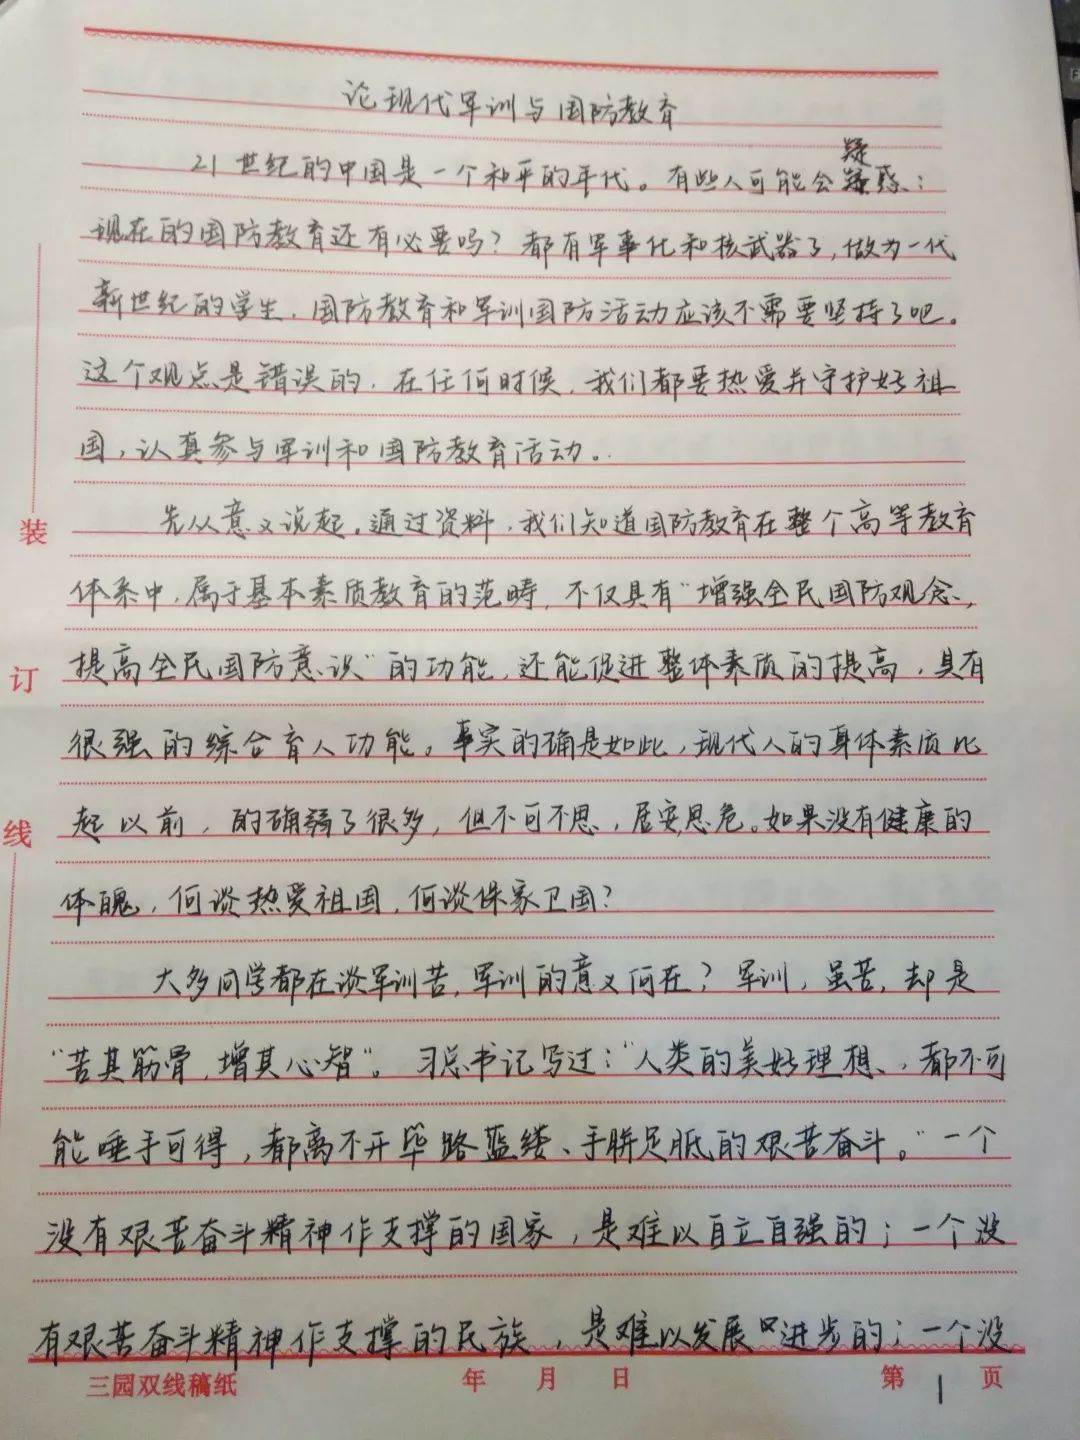 论现代军训与国防教育
21世纪的中国是一个和平的年代。有些人可能会疑惑：
现在的国防教育还有必要吗？都有军事化和核武器了，做为一代
新世纪的学生，国防教育和军训国防活动应该不需要坚持了吧。
这个观点是错误的，在任何时候，我们都要热爱并守护好祖
国，认真参与军训和国防教育活动。
先从意义说起，通过资料，我们知道国防教育在整个高等教育
体系中，属于基本素质教育的范畴，不仅具有“增强全民国防观念、
提高全民国防意识”的功能，还能促进整体素质的提高，具有
很强的综合育人功能。事实的确是如此，现代人的身体素质比
起以前，的确弱了很多，但不可不思，居安思危。如果没有健康的
体魄，何谈热爱祖国，何谈保家卫国？
大多同学都在谈军训苦，军训的意义何在？军训，虽苦，却是
“苦其筋骨，增其心智”。习总书记写过：“人类的美好理想，都不可
能唾手可得，都离不开筚路蓝缕、手胼足胝的艰苦奋斗。”一个
没有艰苦奋斗精神作支撑的国家，是难以自立自强的；一个没
有艰苦奋斗精神作支撑的民族，是难以发展进步的；一个没
装
订
线
三园双线稿纸 年 月 日 第 1 页